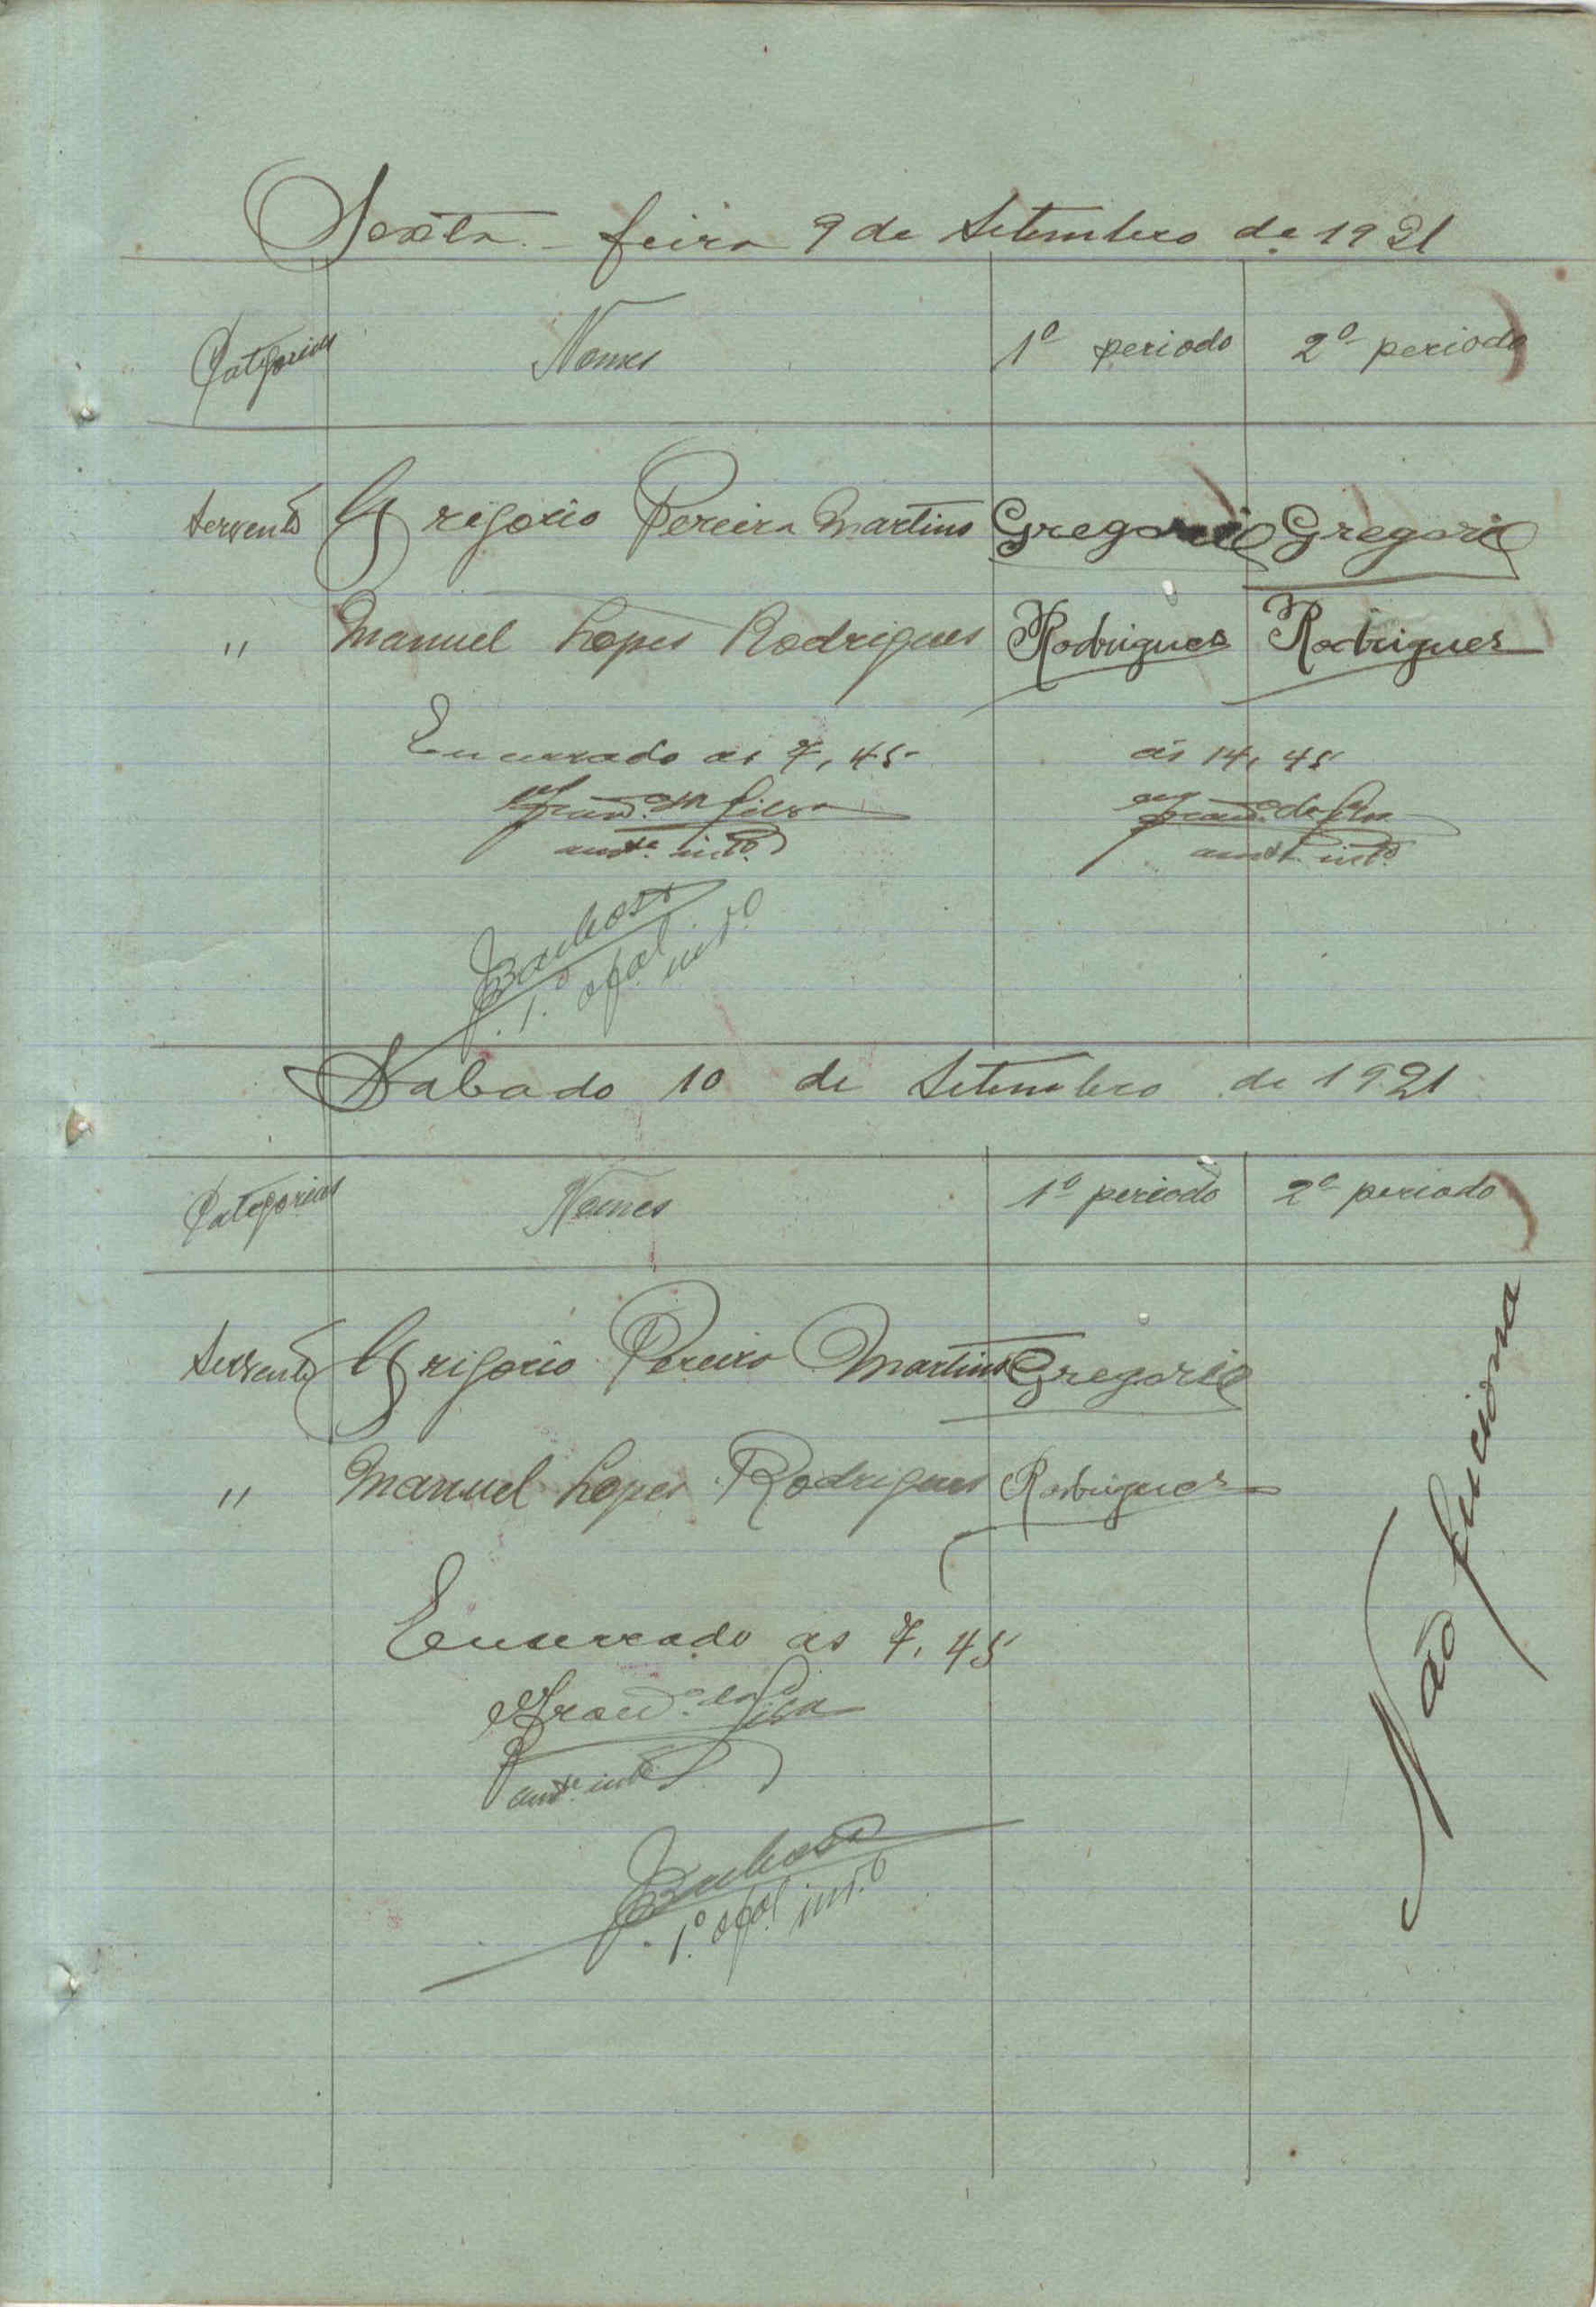 Sexta-feira 9 de Setembro de 1921
Categorias Nomes 1º periodo 2º periodo
Servente Grigorio Pereira Martins Gregorio Gregorio
" Manuel Lopes Rodrigues Rodrigues Rodrigues
Encerrado as 7,45 ás 14,45
Silva
amte. into.
Barbosa
1.º ofal. into
Sabado 10 de Setembro de 1921
Categorias Nomes 1º periodo 2º periodo
Servente Grigorio Pereira Martins Gregorio
" Manuel Lopes Rodrigues Rodrigues
Encerrado as 7,45
Silva
amte. into.
Barbosa
1.º ofal. into
Não funciona